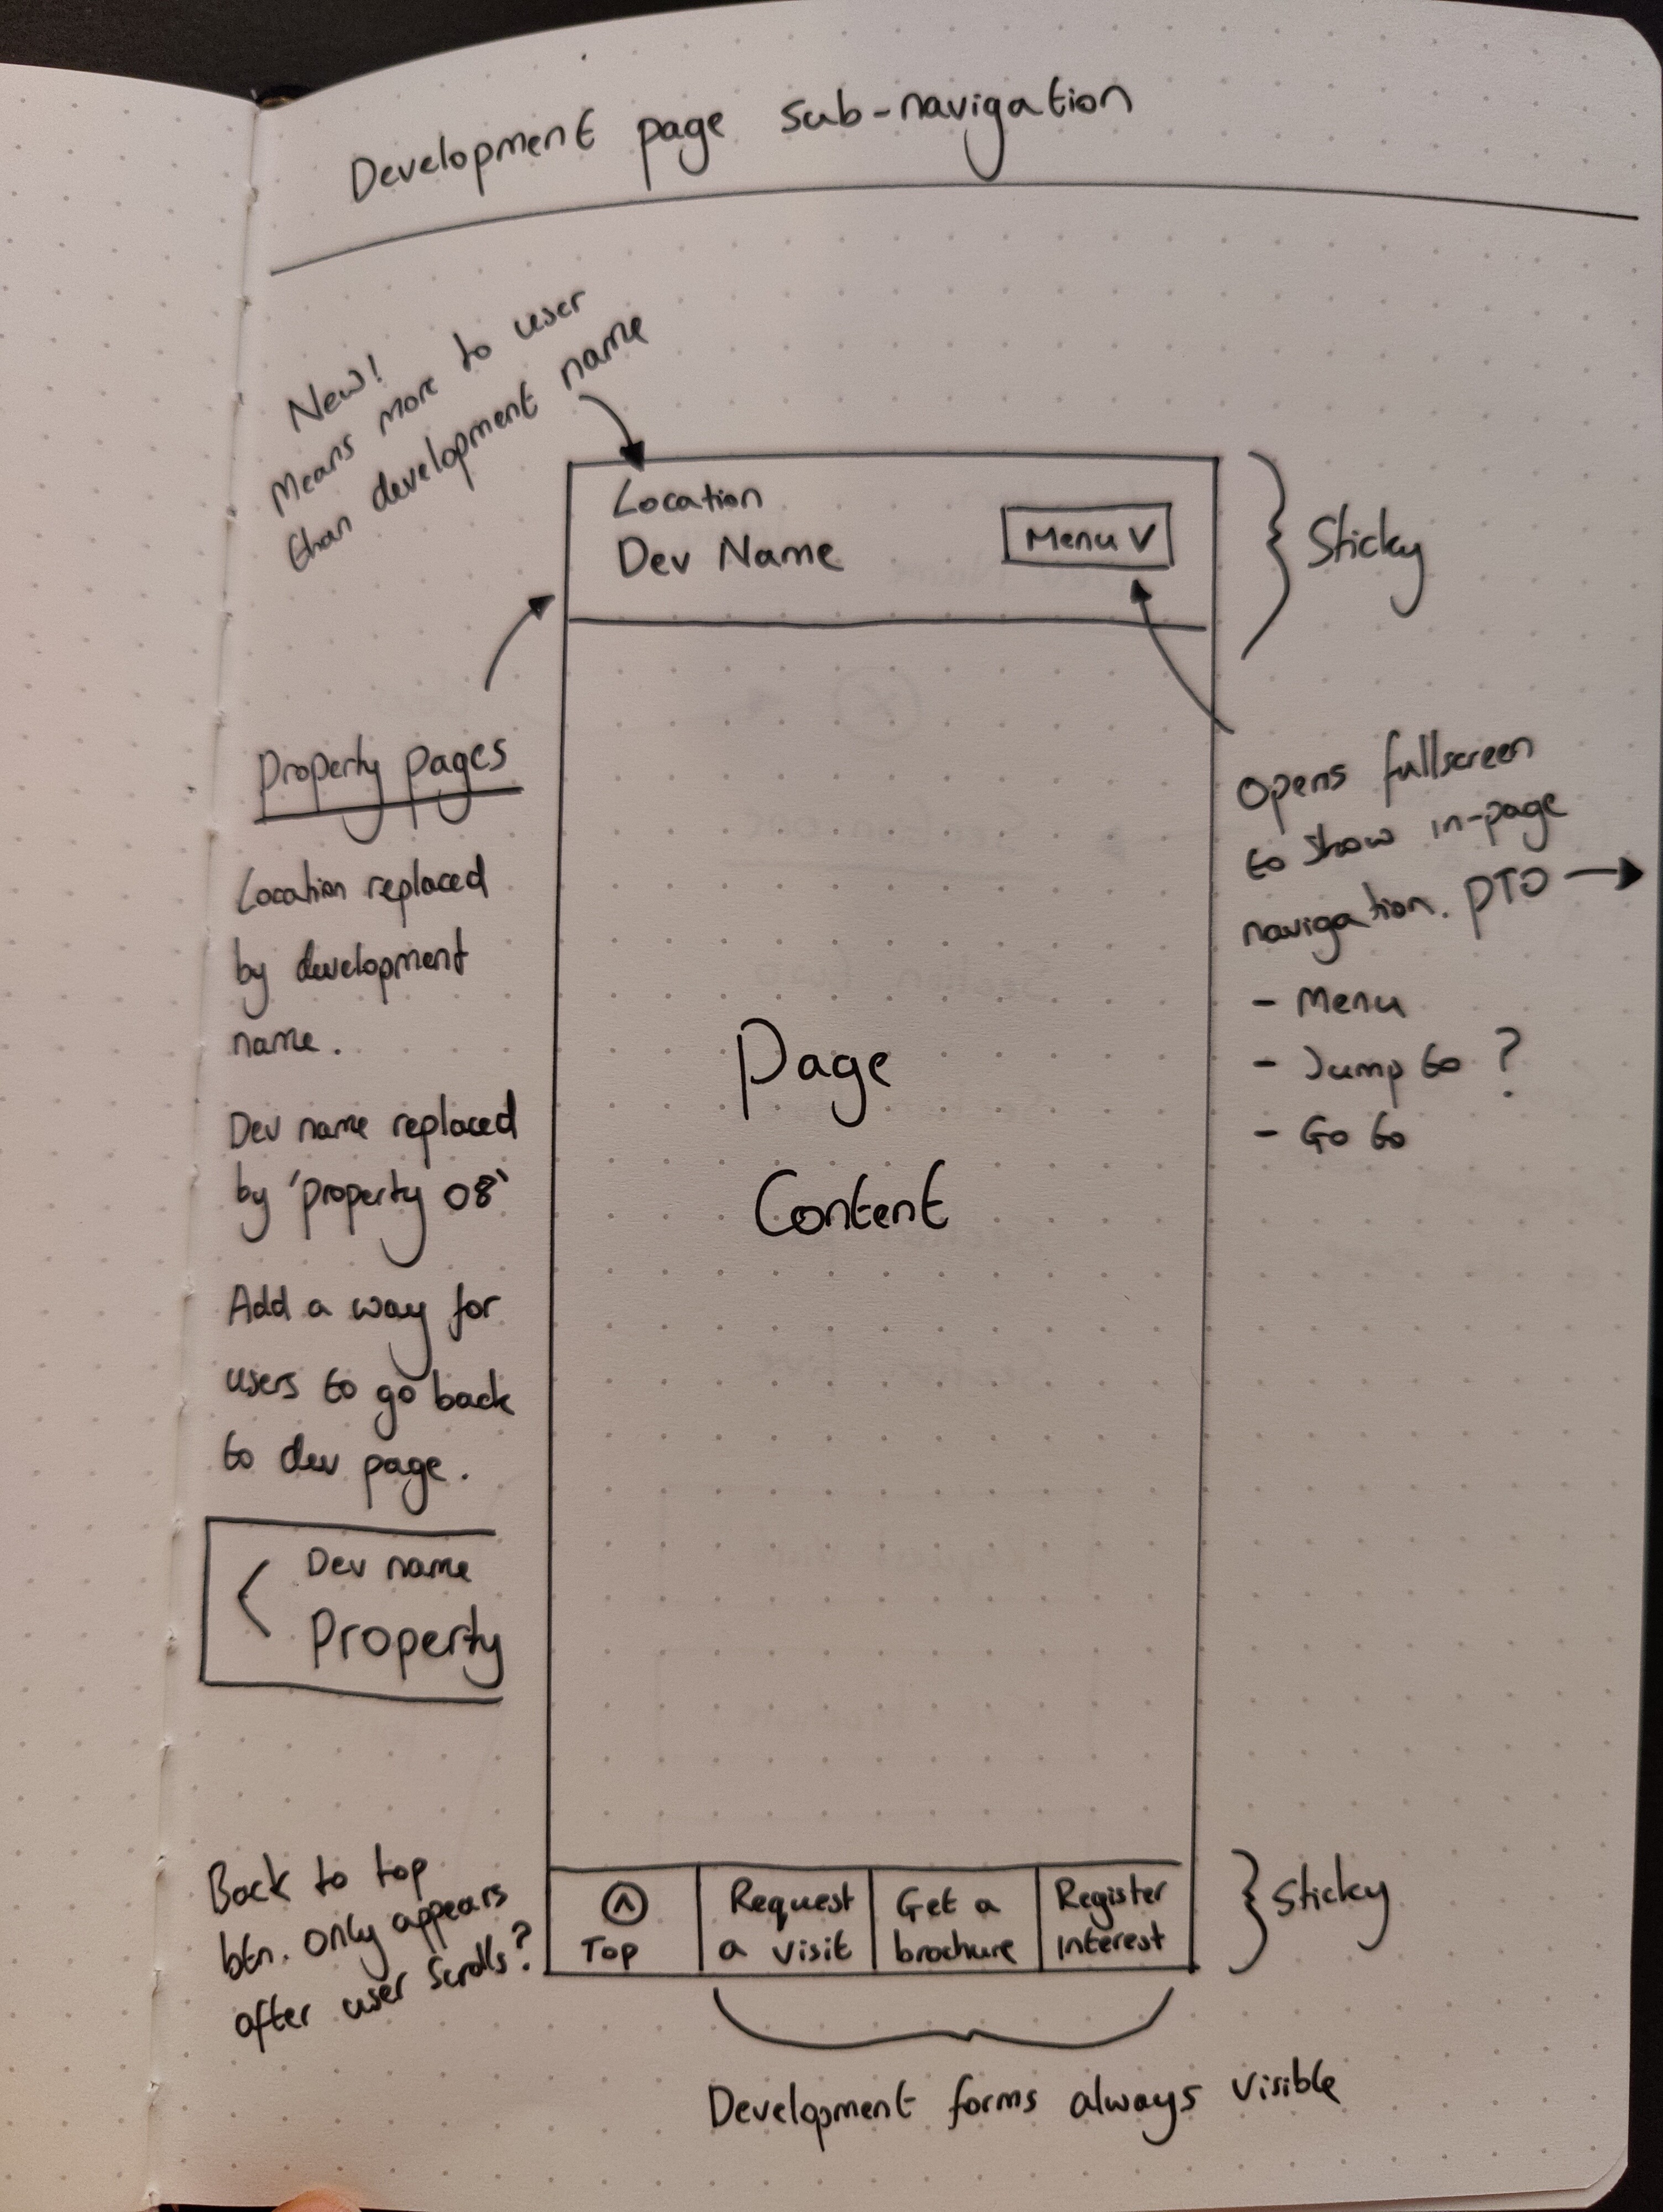 Development page sub-navigation
New!
Means more to user
than development name
Location
Dev Name
Menu V
Sticky
Property pages
Location replaced
by development
name.
Dev name replaced
by 'property 08'
Add a way for
users to go back
to dev page.
< Dev name
Property
Opens fullscreen
to show in-page
navigation. PTO →
- Menu
- Jump to ?
- Go to
Page
Content
Back to top
btn. only appears
after user scrolls?
Top
Request
a visit
Get a
brochure
Register
interest
Sticky
Development forms always visible